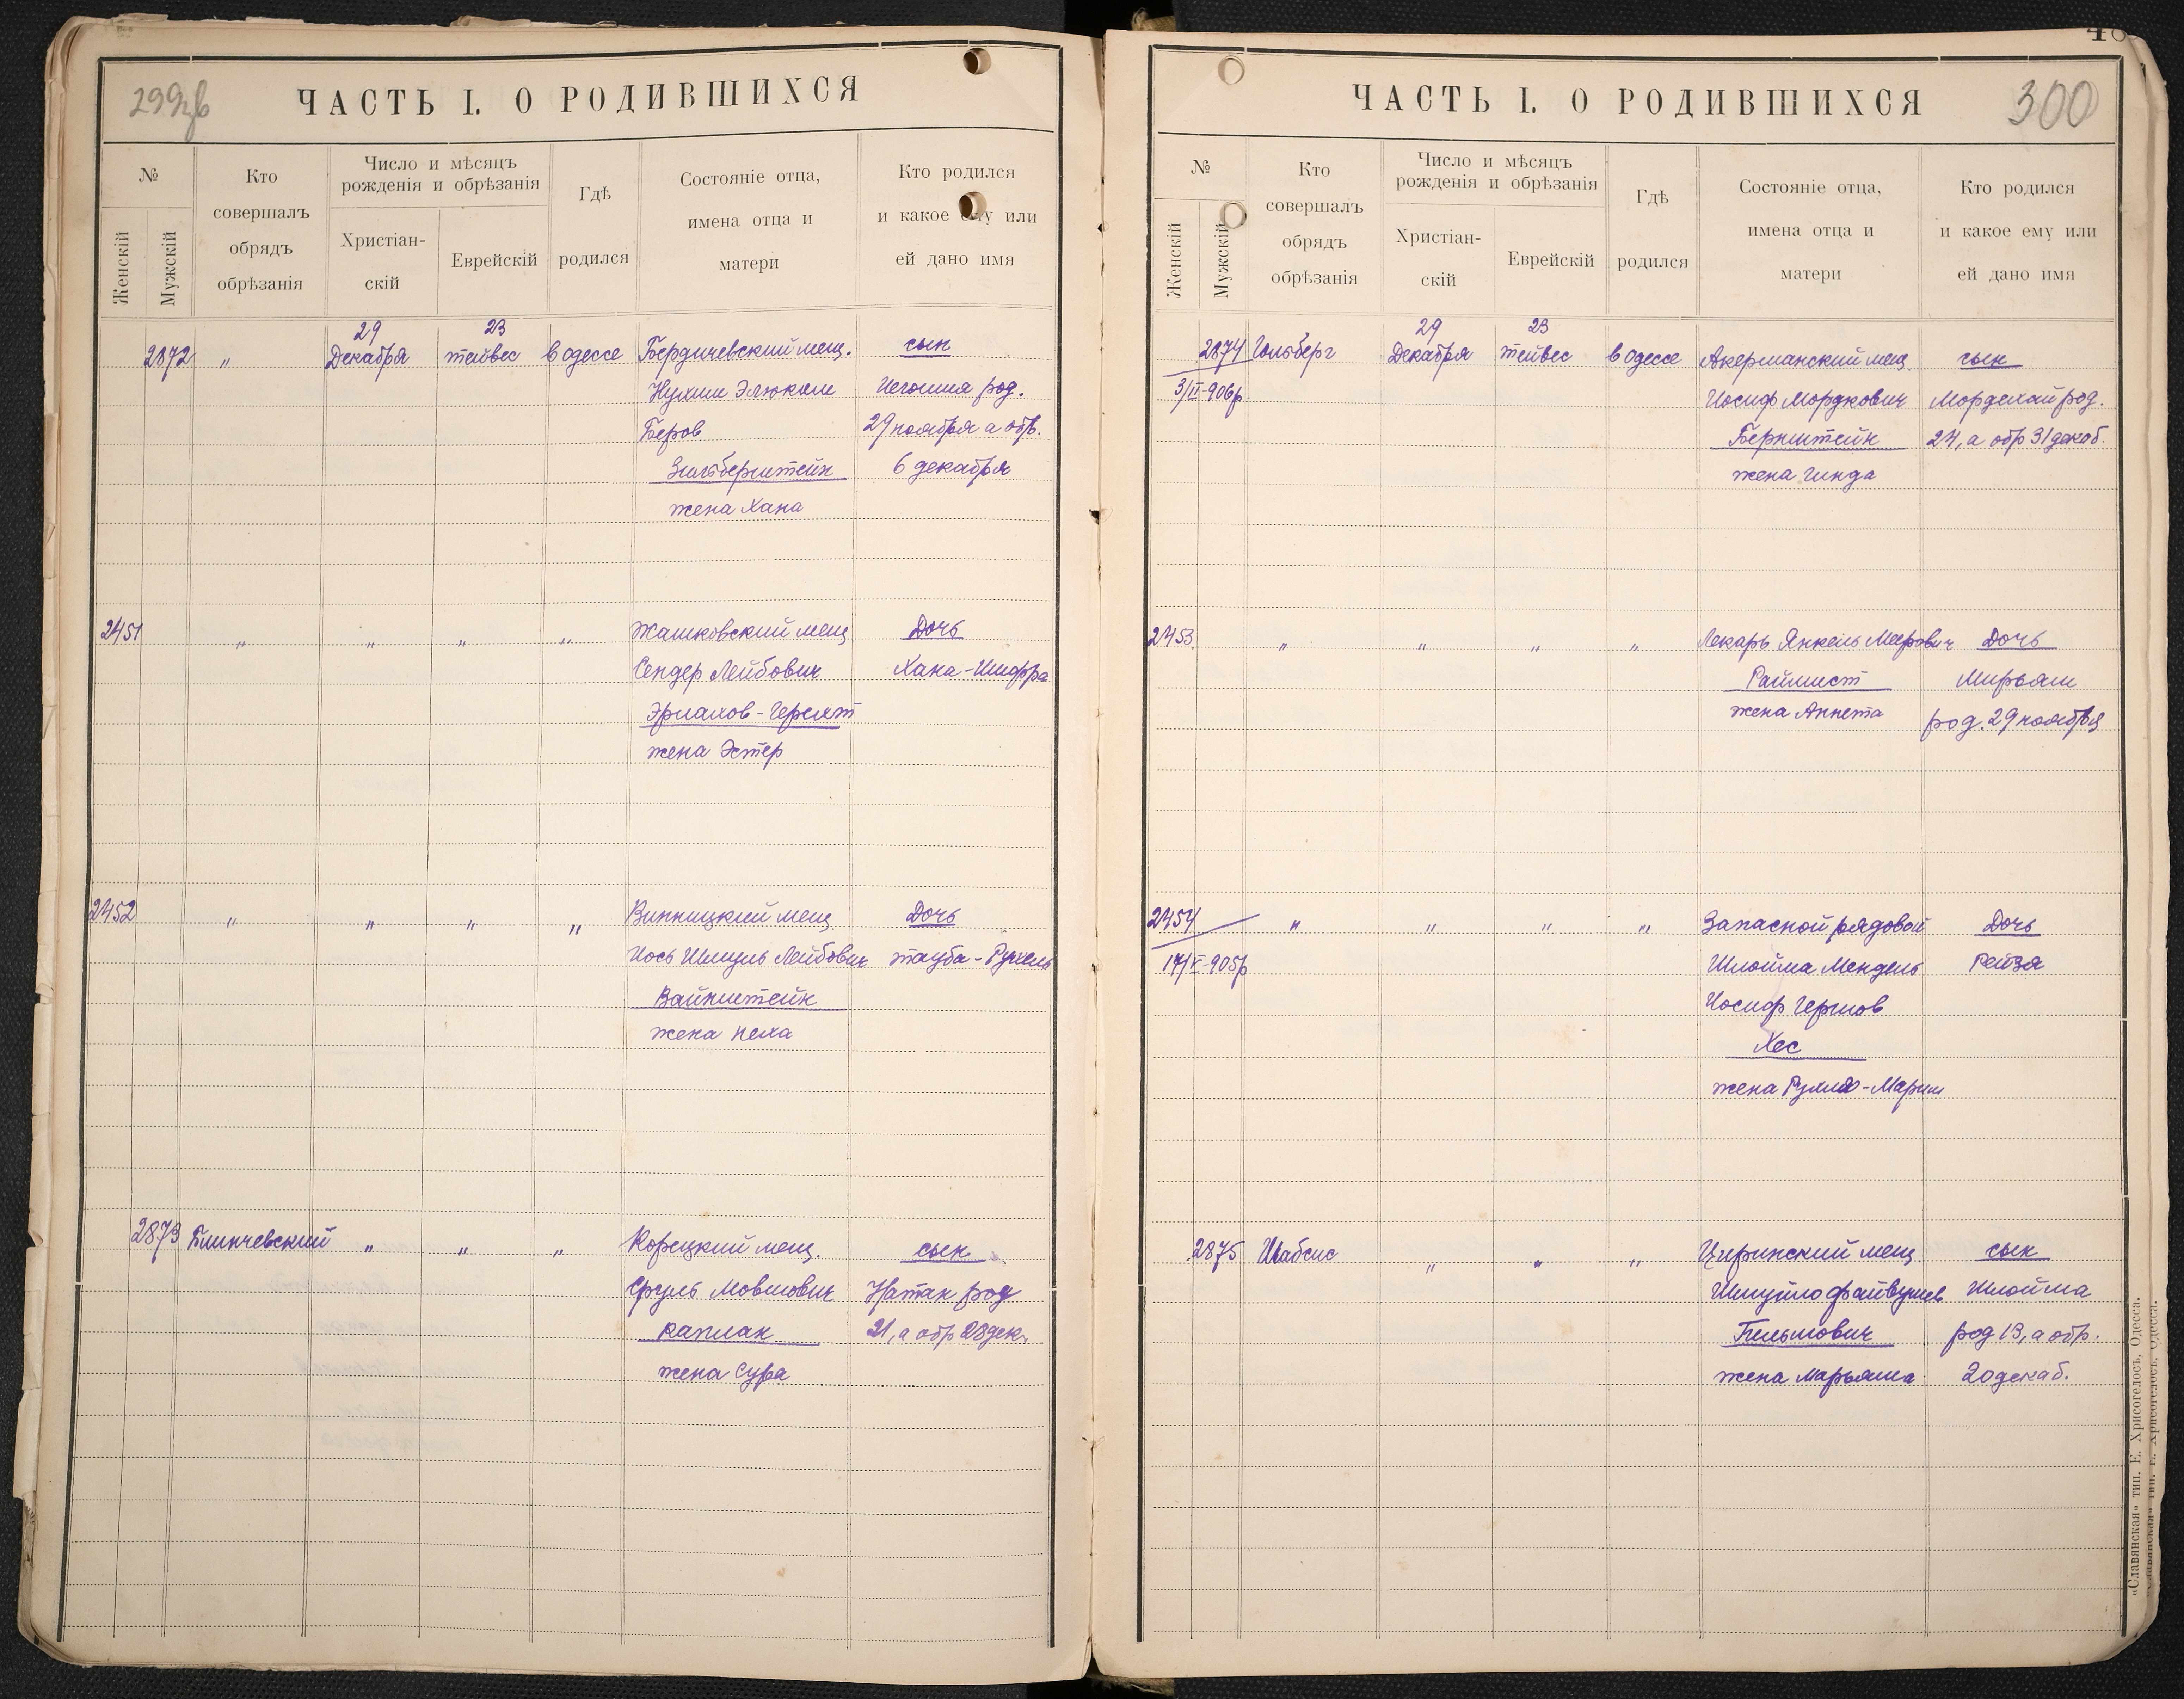 299зв
ЧАСТЬ I. О РОДИВШИХСЯ
№
Женскій
Мужскій
Кто
совершалъ
обрядъ
обрѣзанія
Число и мѣсяцъ
рожденія и обрѣзанія
Христіан-
скій
Еврейскій
Гдѣ
родился
Состояніе отца,
имена отца и
матери
Кто родился
и какое ему или
ей дано имя
29 23
2872 " Декабря тейвес в одессе Бердичевский мещ. сын
Нухим Элюким Иегошия род.
Беров 29 ноября а обр.
Зильберштейн 6 декабря
жена Хана
2451 " " " " Жашковский мещ Дочь
Сендер Лейбович Хана-Шифра
Эрлахов-Герехт
жена Эстер
2452 " " " " Винницкий мещ Дочь
Иось Шмуль Лейбович тауба-Рухель
Вайнштейн
жена Неха
2873 Блинчевский " " " Корецкий мещ. сын
Сруль Мовшович Натан род
каплан 21, а обр 28 дек.
жена Сура
ЧАСТЬ I. О РОДИВШИХСЯ
300
№
Женскій
Мужскій
Кто
совершалъ
обрядъ
обрѣзанія
Число и мѣсяцъ
рожденія и обрѣзанія
Христіан-
скій
Еврейскій
Гдѣ
родился
Состояніе отца,
имена отца и
матери
Кто родился
и какое ему или
ей дано имя
29 23
2874 Гольберг Декабря тейвес в одессе Акерманский мещ сын
3/II-906р Иосиф Мордкович Мордехай род.
Бернштейн 24, а обр 31 декаб.
жена Гинда
2453 " " " " Лекарь Янкель Меерович Дочь
Раймист Мирьям
жена Аннета род. 29 ноября
2454 " " " " Запасной рядовой Дочь
17/V-905р Шлойма Мендель Рейзя
Иосиф Гершов
Хес
жена -Марим
2875 Шабсис " " " Цыринский мещ. сын
Шмуйло файвушев Шлойма
Гильмович род 13, а обр.
жена Марьяша 20 декаб.
«Славянская» тип. Е. Хрисогелосъ. Одесса.